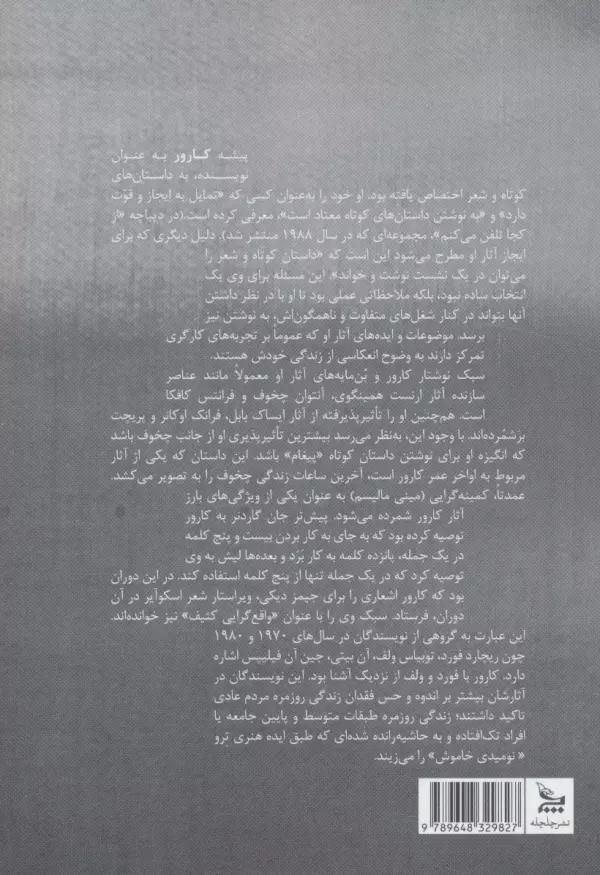 پیشه کارور به عنوان
نویسنده، به داستان‌های
کوتاه و شعر اختصاص یافته بود. او خود را به‌عنوان کسی که «تمایل به ایجاز و قوّت
دارد» و «به نوشتن داستان‌های کوتاه معتاد است»، معرفی کرده است.(در دیباچه «از
کجا تلفن می‌کنم»، مجموعه‌ای که در سال ۱۹۸۸ منتشر شد). دلیل دیگری که برای
ایجاز آثار او مطرح می‌شود این است که «داستان کوتاه و شعر را
می‌توان در یک نشست نوشت و خواند». این مسئله برای وی یک
انتخاب ساده نبود، بلکه ملاحظاتی عملی بود تا او با در نظر داشتن
آنها بتواند در کنار شغل‌های متفاوت و ناهمگون‌اش، به نوشتن نیز
برسد. موضوعات و ایده‌های آثار او که عموماً بر تجربه‌های کارگری
تمرکز دارند به وضوح انعکاسی از زندگی خودش هستند.
سبک نوشتار کارور و بُن‌مایه‌های آثار او معمولاً مانند عناصر
سازنده آثار ارنست همینگوی، آنتوان چخوف و فرانتس کافکا
است. هم‌چنین او را تأثیرپذیرفته از آثار ایساک بابل، فرانک اوکانر و پریچت
برشمرده‌اند. با وجود این، به‌نظر می‌رسد بیشترین تأثیرپذیری او از جانب چخوف باشد
که انگیزه او برای نوشتن داستان کوتاه «پیغام» باشد. این داستان که یکی از آثار
مربوط به اواخر عمر کارور است، آخرین ساعات زندگی چخوف را به تصویر می‌کشد.
عمدتاً، کمینه‌گرایی (مینی مالیسم) به عنوان یکی از ویژگی‌های بارز
آثار کارور شمرده می‌شود. پیش‌تر جان گاردنر به کارور
توصیه کرده بود که به جای به کار بردن بیست و پنج کلمه
در یک جمله، پانزده کلمه به کار بَرَد و بعدها لیش به وی
توصیه کرد که در یک جمله تنها از پنج کلمه استفاده کند. در این دوران
بود که کارور اشعاری را برای جیمز دیکی، ویراستار شعر اسکوآیر در آن
دوران، فرستاد. سبک وی را با عنوان «واقع‌گرایی کثیف» نیز خوانده‌اند.
این عبارت به گروهی از نویسندگان در سال‌های ۱۹۷۰ و ۱۹۸۰
چون ریچارد فورد، توبیاس ولف، آن بیتی، جین آن فیلیپس اشاره
دارد. کارور با فورد و ولف از نزدیک آشنا بود. این نویسندگان در
آثارشان بیشتر بر اندوه و حس فقدان زندگی روزمره مردم عادی
تاکید داشتند؛ زندگی روزمره طبقات متوسط و پایین جامعه یا
افراد تک‌افتاده و به حاشیه‌رانده شده‌ای که طبق ایده هنری ترو
« نومیدی خاموش» را می‌زیند.
9 789648 329827
نشر چلچله